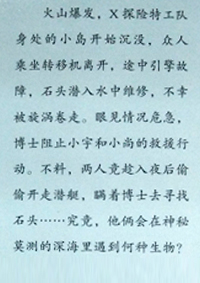 火山爆发，X探险特工队
身处的小岛开始沉没，众人
乘坐转移机离开，途中引擎故
障，石头潜入水中维修，不幸
被旋涡卷走。眼见情况危急，
博士阻止小宇和小尚的救援行
动。不料，两人竟趁入夜后偷
偷开走潜艇，瞒着博士去寻找
石头……究竟，他俩会在神秘
莫测的深海里遇到何种生物？